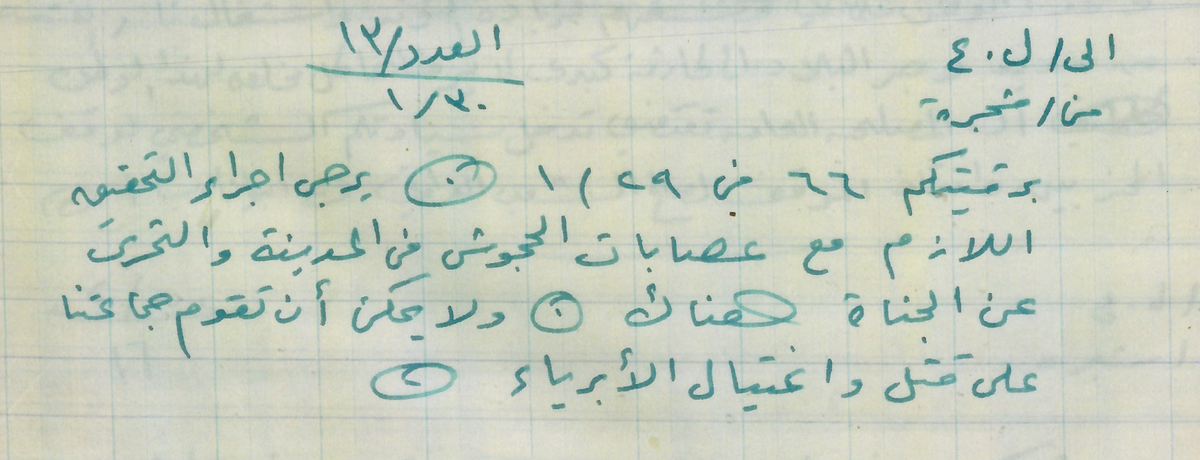 الى/ ل٤٠
العدد/١٣
١/٣٠
من/ شجرة
برقيتكم ٦٦ في ٢٩ / ١ ⊙ يرجى اجراء التحقيق
اللازم مع عصابات الجحوش في المدينة والتحري
عن الجناة هناك ⊙ ولا يمكن أن تقوم جماعتنا
على قتل واغتيال الأبرياء ⊙